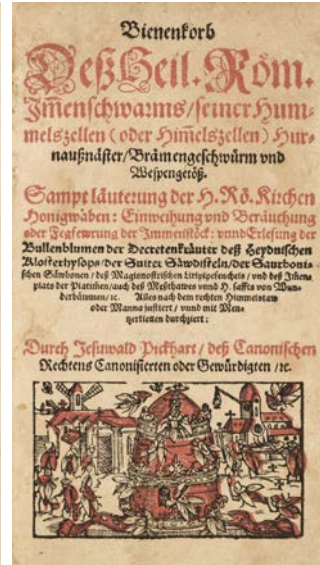 Bienenkorb
Deß Heil. Röm.
Im̃enschwarms / seiner Hum-
melszellen (oder Him̃elszellen) Hur-
naußnäster / Brämengeschwürm vnd
Wespengetöß.
Sampt läuterung der H. Rö. Kirchen
Honigwaben: Einweihung vnd Beräuchung
oder Fegfewrung der Immenstöck: vnnd Erlesung der
Bullenblumen der Decretenkräuter deß Heydnischen
Klosterhysops / der Suiter Säwdisteln / der Saurboni-
schen Säwbonen / deß Magisnostrischen Liripipefenchels / vnd deß Im̃en-
plats der Plattiñen / auch deß Meßthawes vnnd H. saffts von Wun-
derbäumen / ꝛc. Alles nach dem rechten Himmelstaw
oder Manna justiert / vnnd mit Men-
tzerkletten durchziert:
Durch Jesuwald Pickhart / deß Canonischen
Rechtens Canonisierten oder Gewürdigten / ꝛc.